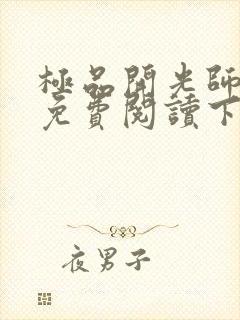 極品開光師
免費閱讀下
夜男子